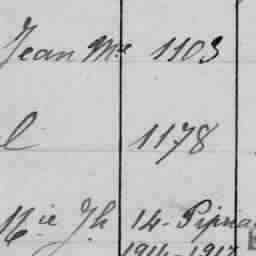 Jean Mie 1103
l 1178
Mie Jh 14 - Pipria
1914-1917